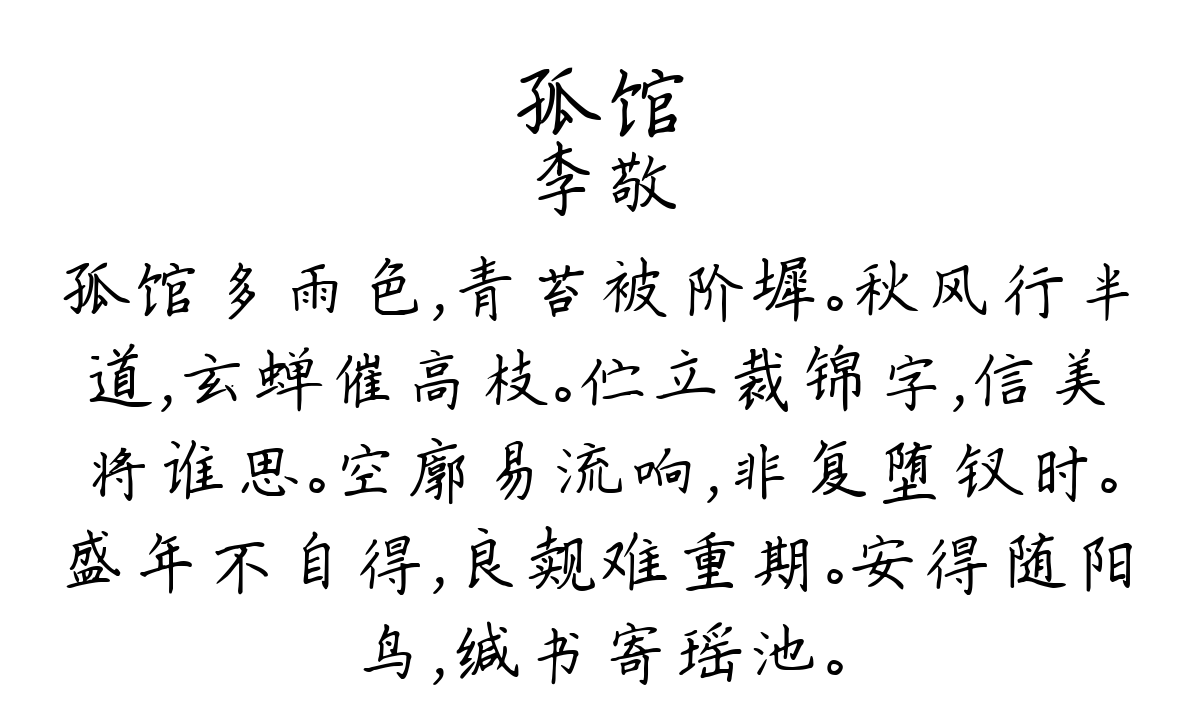 孤馆
李敬
孤馆多雨色,青苔被阶墀。秋风行半
道,玄蝉催高枝。伫立裁锦字,信美
将谁思。空廓易流响,非复堕钗时。
盛年不自得,良觌难重期。安得随阳
鸟,缄书寄瑶池。